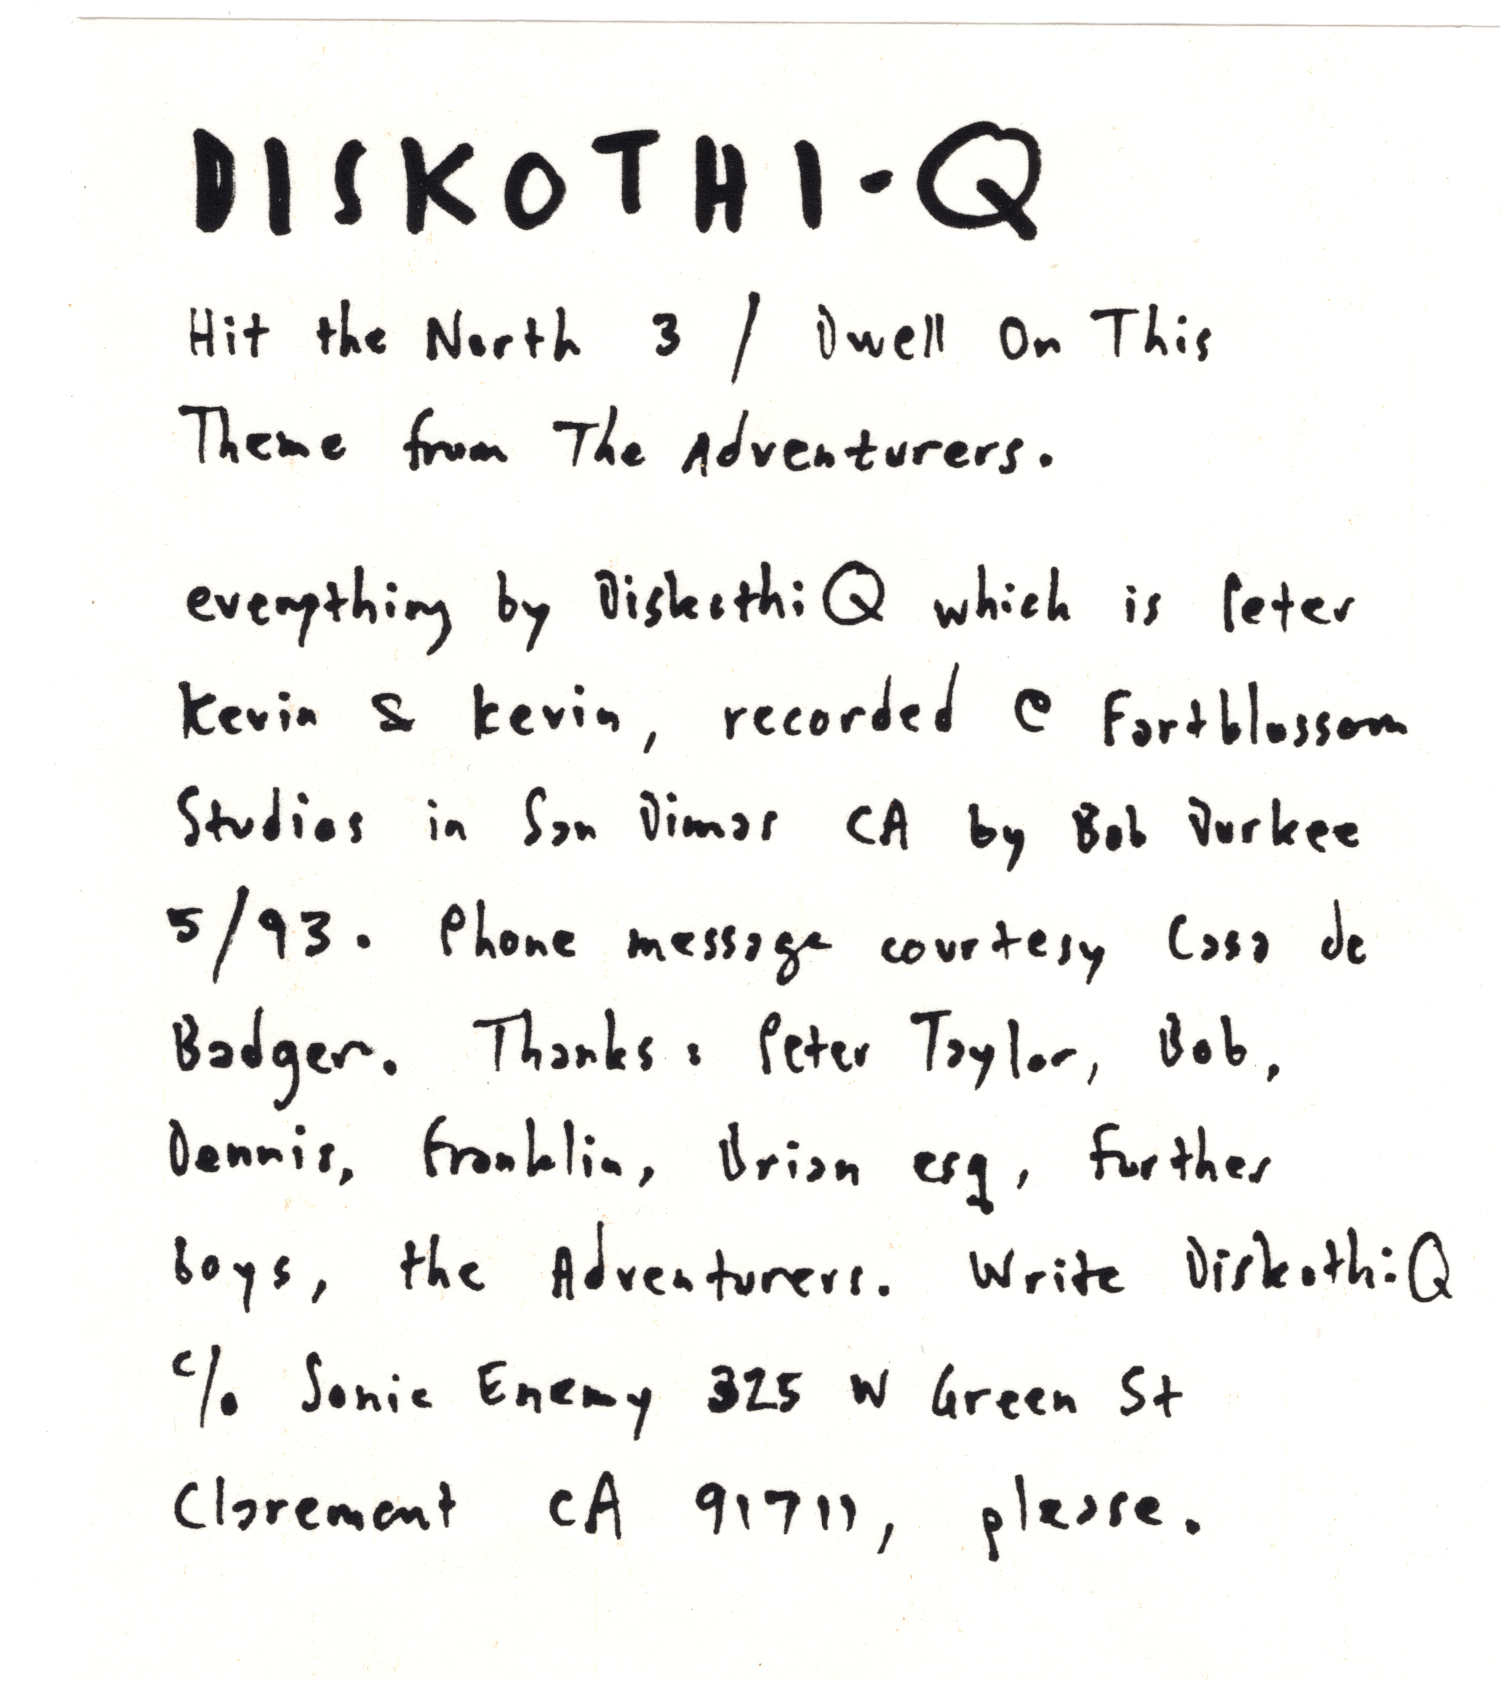 DISKOTHI-Q
Hit the North 3 / Dwell On This
Theme from The Adventurers.
everything by DiskothiQ which is Peter
Kevin & Kevin, recorded @ Fartblossom
Studios in San Dimas CA by Bob Durkee
5/93. Phone message courtesy Casa de
Badger. Thanks: Peter Taylor, Bob,
Dennis, Franklin, Brian esq, Further
boys, the Adventurers. Write DiskothiQ
c/o Sonic Enemy 325 W Green St
Claremont CA 91711, please.